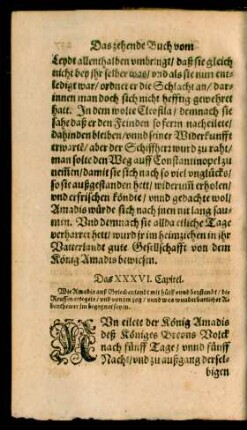 Das zehende Buch vom
Leydt allenthalben vmbringt/ daß sie gleich
nicht bey ihr selber was/ vnd als sie nun ent-
ledigt war/ ordnet er die Schlacht an/ dar-
innen man doch sich nicht hefftig gewehret
hatt. In dem wolte Cleofila/ demnach sie
sahe daß er den Feinden so fern nacheilete/
dahinden bleiben/ vnnd seiner Widerkunfft
erwarte/ aber der Schiffherr wurd zu raht/
man solte den Weg auff Constantinopel zu
nemen/ damit sie sich nach so viel vnglücks/
so sie außgestanden hett/ widerumb erholen/
vnd erfrischen köndte/ vnnd gedacht wol/
Amadis würde sich nach jnen nit lang sau-
men. Vnd demnach sie allda etliche Tage
verharret hett/ wird jr im heimziehen in ihr
Vatterlandt gute Gesellschafft von dem
König Amadis bewiesen.
Das XXXVI. Capitel.
Wie Amadis auß Griechenlandt mit hülff vnnd beystandt/ die
Reussen erlegete/ vnd von jm zog/ vnnd was wunderbarlicher A-
benthewer im begegnet seyn.
NVn eilete der König Amadis
deß Königes Breons Volck
nach fünff Tage/ vnnd fünff
Nacht/ vnd zu außgang dersel-
bigen